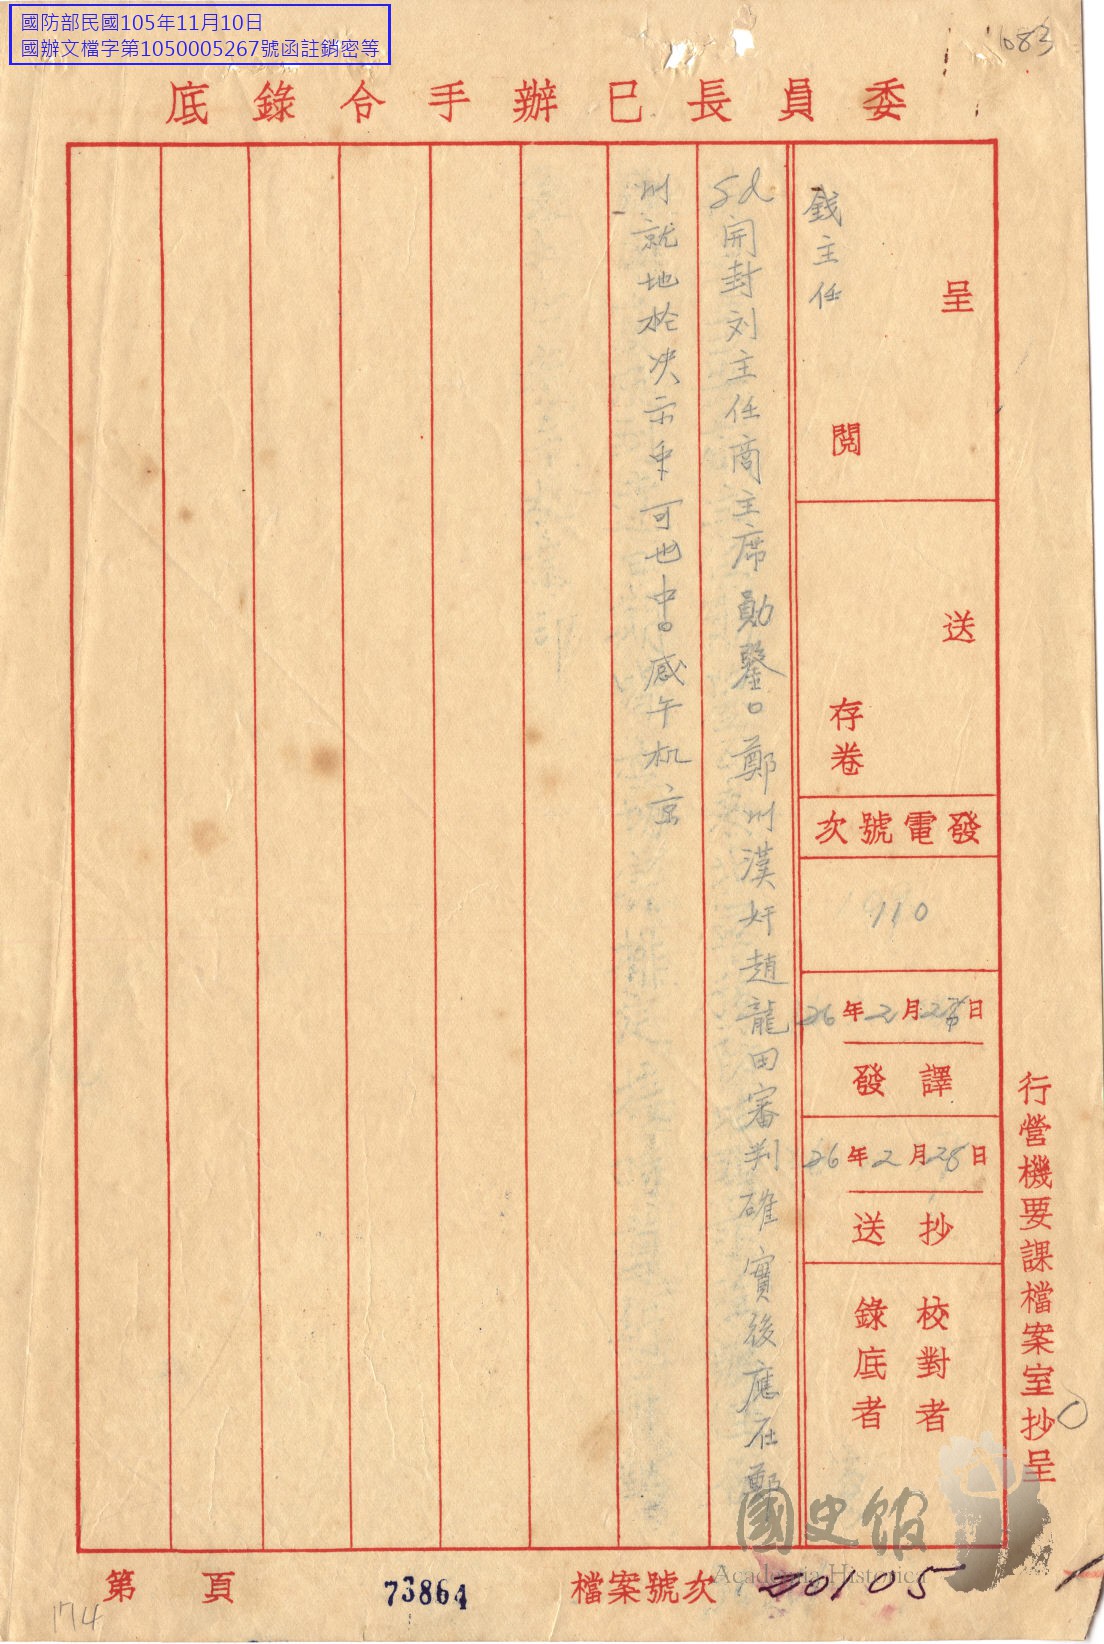 國防部民國105年11月10日
國辦文檔字第1050005267號函註銷密等
083
委員長已辦手令錄底
呈
閱
錢主任
送
存卷
發電號次
110
26年2月2日
譯發
26年2月28日
抄送
校對者
錄底者
開封刘主任商主席勛鑒○鄭州漢奸趙龍田審判確實後應在鄭
州就地枪决示衆可也中○感午机京
行營機要課檔案室抄呈
國史館
Academia Historica
檔案號次
20105
73864
第 頁
174